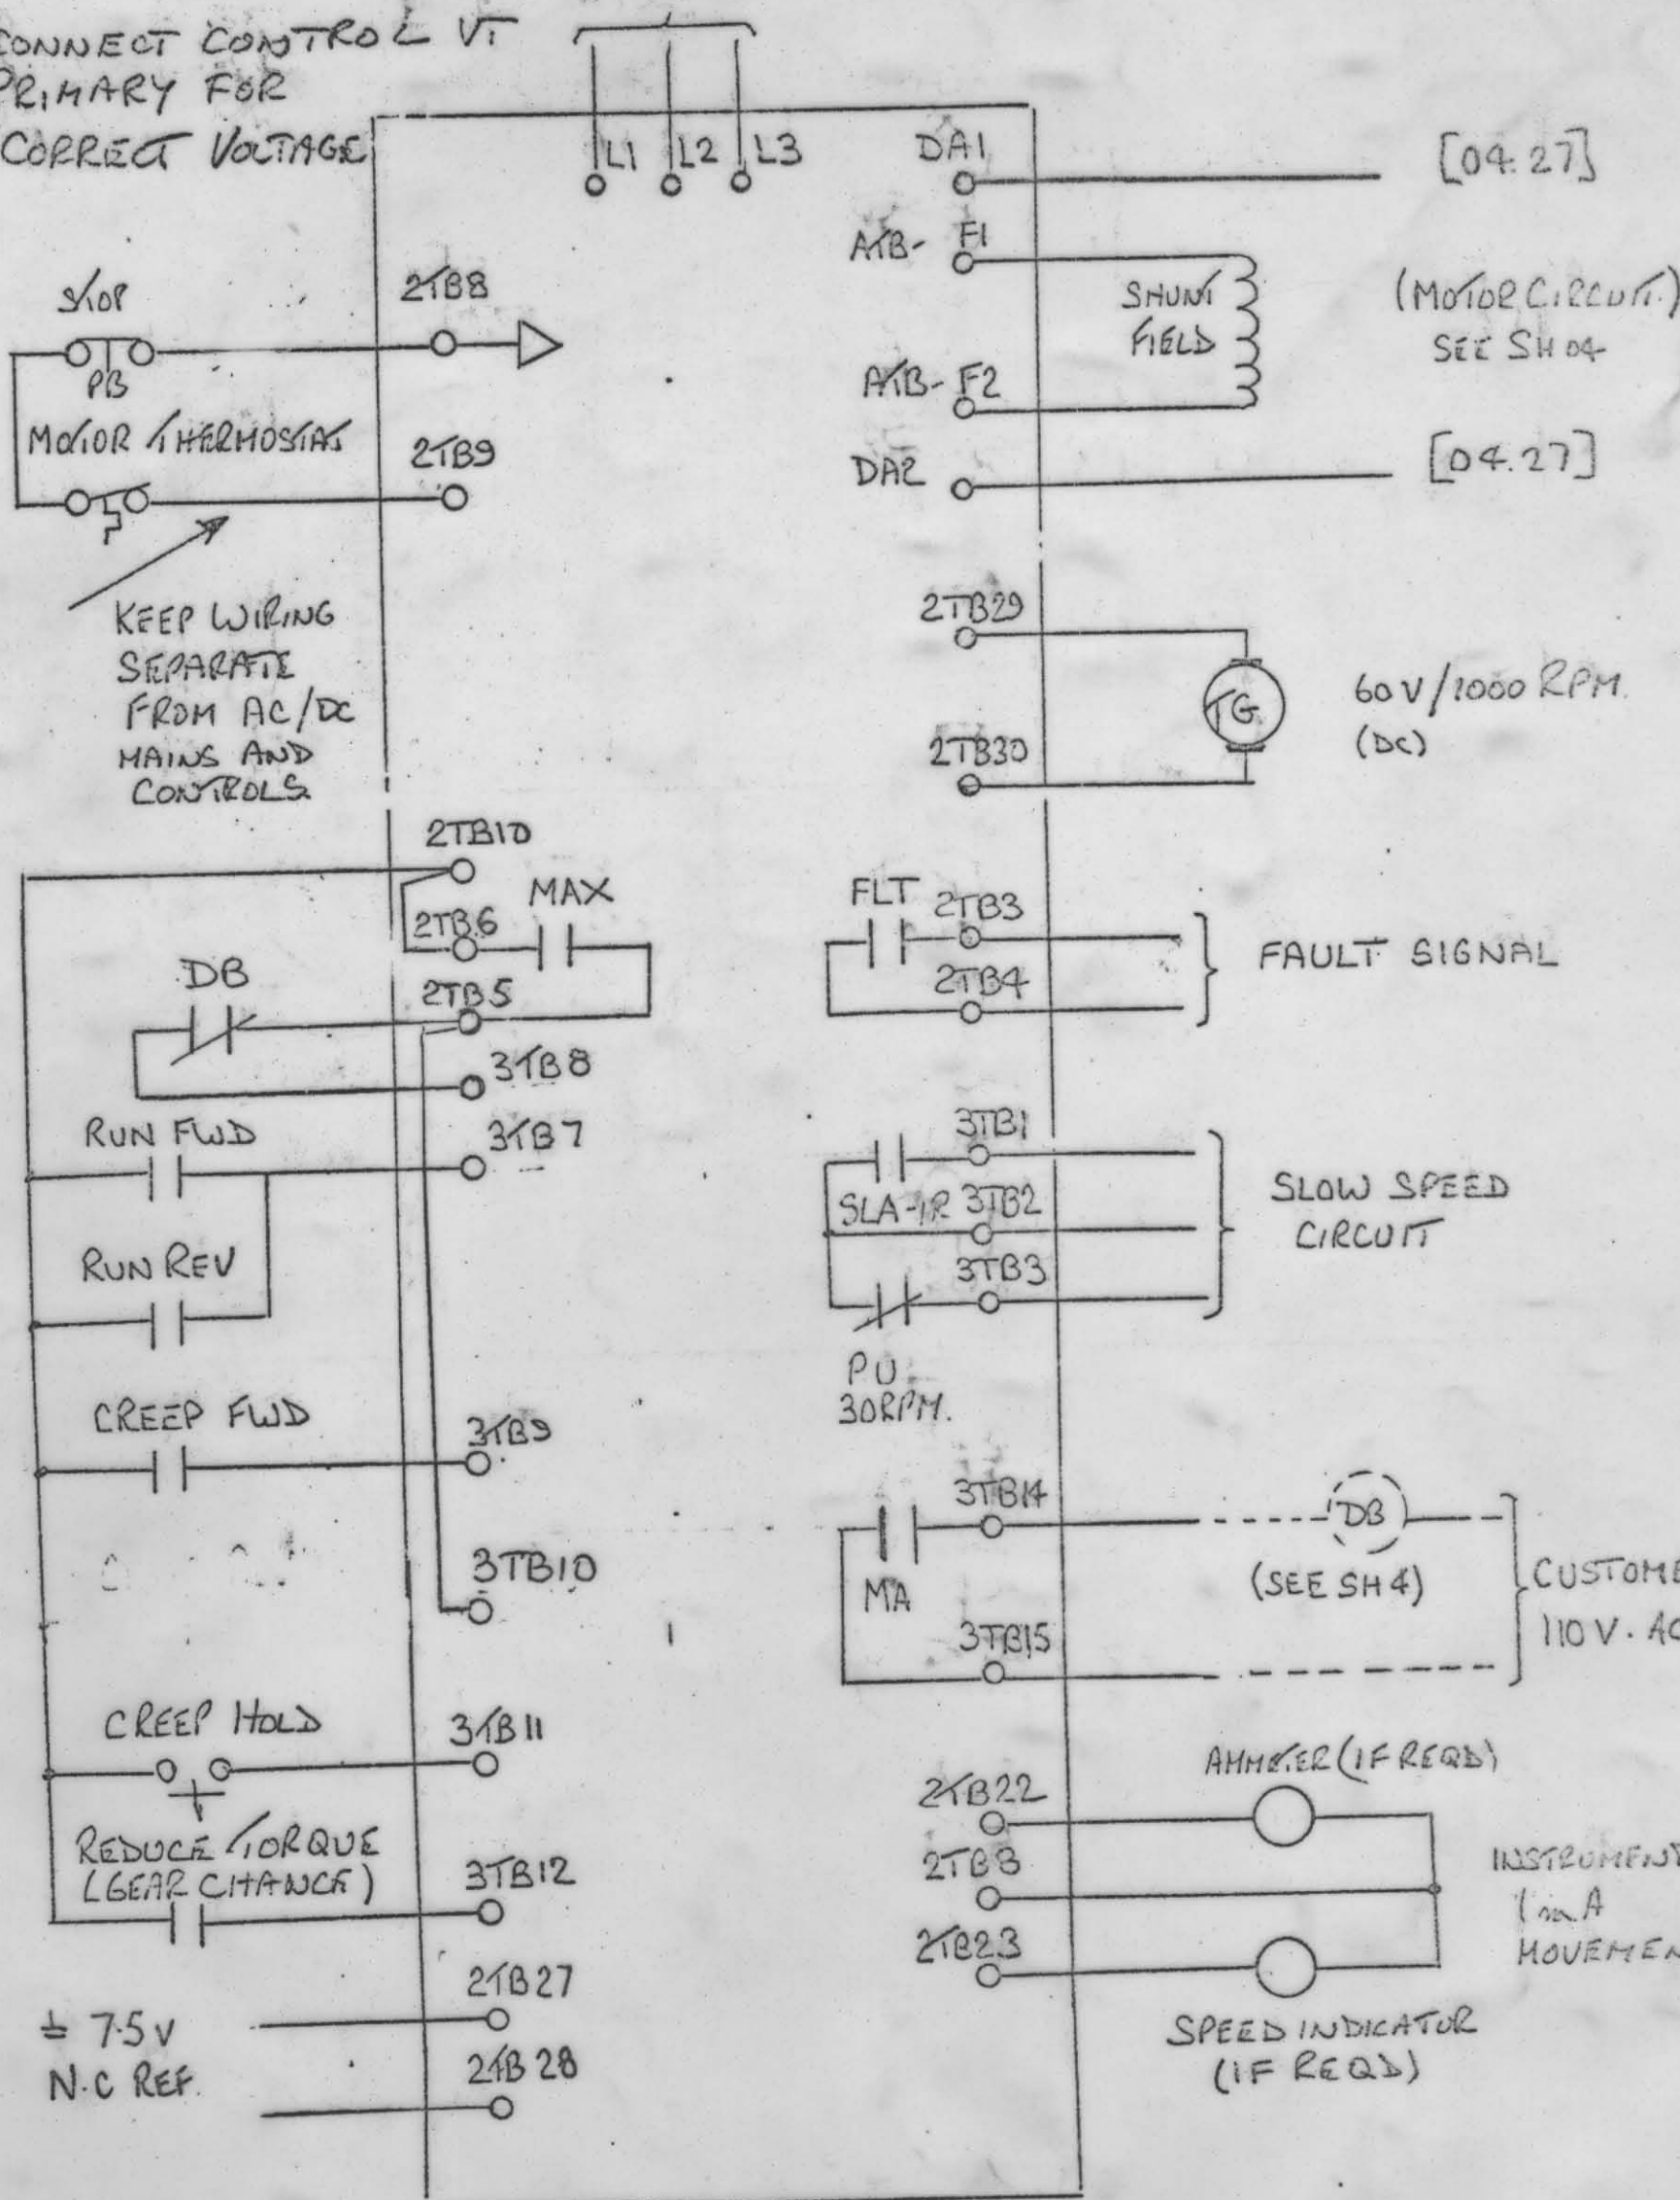 CONNECT CONTROL VT
PRIMARY FOR
CORRECT VOLTAGE
L1 L2 L3
DA1
[04.27]
ATB- F1
SHUNT
FIELD
(MOTOR CIRCUIT.)
SEE SH 04
ATB- F2
DA2
[04.27]
STOP
PB
2TB8
MOTOR THERMOSTAT
2TB9
KEEP WIRING
SEPARATE
FROM AC/DC
MAINS AND
CONTROLS
2TB29
TG
60V/1000 RPM.
(DC)
2TB30
2TB10
MAX
2TB6
DB
2TB5
3TB8
RUN FWD
3TB7
RUN REV
CREEP FWD
3TB9
3TB10
CREEP HOLD
3TB11
REDUCE TORQUE
(GEAR CHANGE)
3TB12
2TB27
± 7.5V
N.C REF.
2TB28
FLT 2TB3
2TB4
FAULT SIGNAL
3TB1
SLA-1R 3TB2
3TB3
SLOW SPEED
CIRCUIT
PU
30RPM.
3TB14
DB
MA
(SEE SH 4)
3TB15
CUSTOME
110V. AC
AMMETER (IF REQD)
2TB22
2TB8
2TB23
INSTRUMENT
1mA
MOVEMEN
SPEED INDICATOR
(IF REQD)